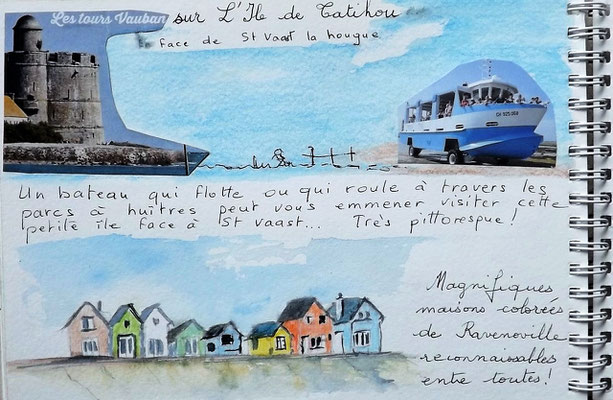 Les tours Vauban sur L'Ile de Tatihou
face de St Vaast la hougue
CH 925 058
Un bateau qui flotte ou qui roule à travers les
parcs à huîtres peut vous emmener visiter cette
petite île face à St Vaast... Très pittoresque !
Magnifiques
maisons colorées
de Ravenoville
reconnaissables
entre toutes !